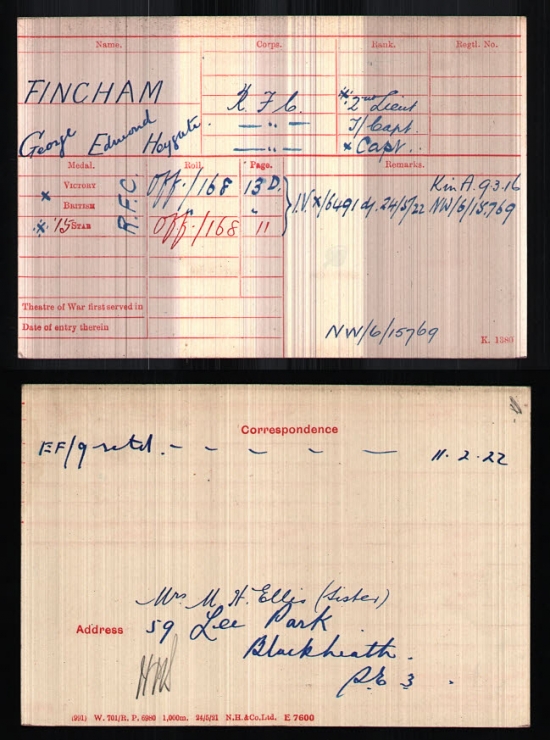 Name. Corps. Rank. Regtl. No.
FINCHAM R.F.C. *2nd Lieut
George Edmund Heygate. — " — T/Capt.
— " — * Capt.
Medal. Roll. Page. Remarks.
* VICTORY R.F.C. Off./168 13 D. Kin A. 9.3.16
BRITISH " " I.V x/6491 d/. 24/5/22 NW/6/15769
* '15 STAR Off./168 11
Theatre of War first served in
Date of entry therein
NW/6/15769
K. 1380
Correspondence
EF/9 retd. - - - - - 11.2.22
Mrs M. H. Ellis (Sister)
Address 59 Lee Park
Blackheath.
S.E 3.
(991) W. 701/R. P. 6980 1,000m. 24/5/21 N.H.&Co.Ltd. E 7600